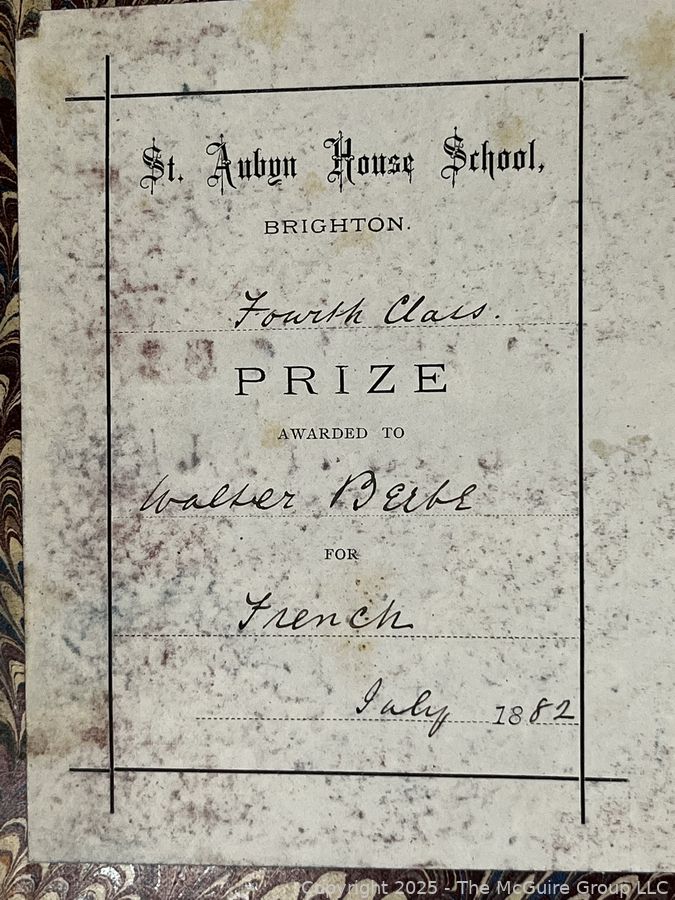 St. Aubyn House School,
BRIGHTON.
Fourth Class.
PRIZE
AWARDED TO
Walter Beebe
FOR
French
July 1882
Copyright 2025 - The McGuire Group LLC